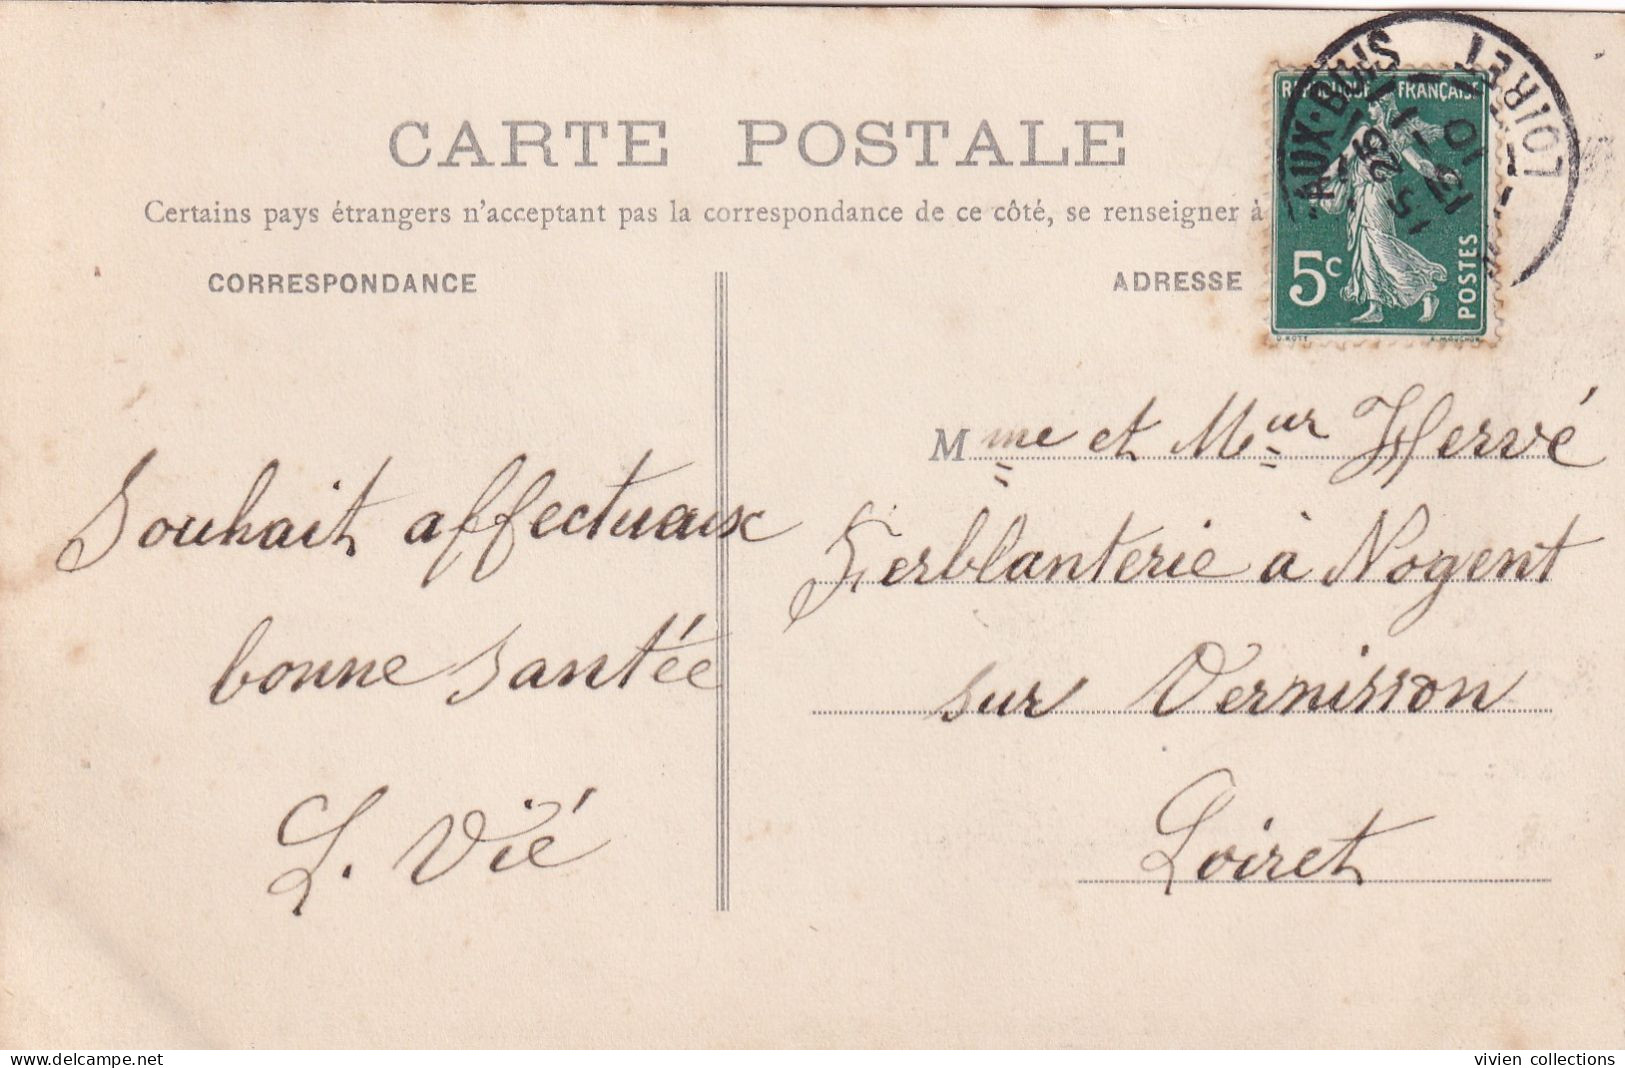 CARTE POSTALE
Certains pays étrangers n'acceptent pas la correspondance de ce côté, se renseigner à
CORRESPONDANCE
Souhait affectuaux
bonne santée
L. Vié
ADRESSE
FRANÇAISE
5c
POSTES
AUX-BOIS
LOIRET
Mme et Meur Hervé
Ferblanterie à Nogent
sur Vernisson
Loiret
delcampe.net
vivien collections